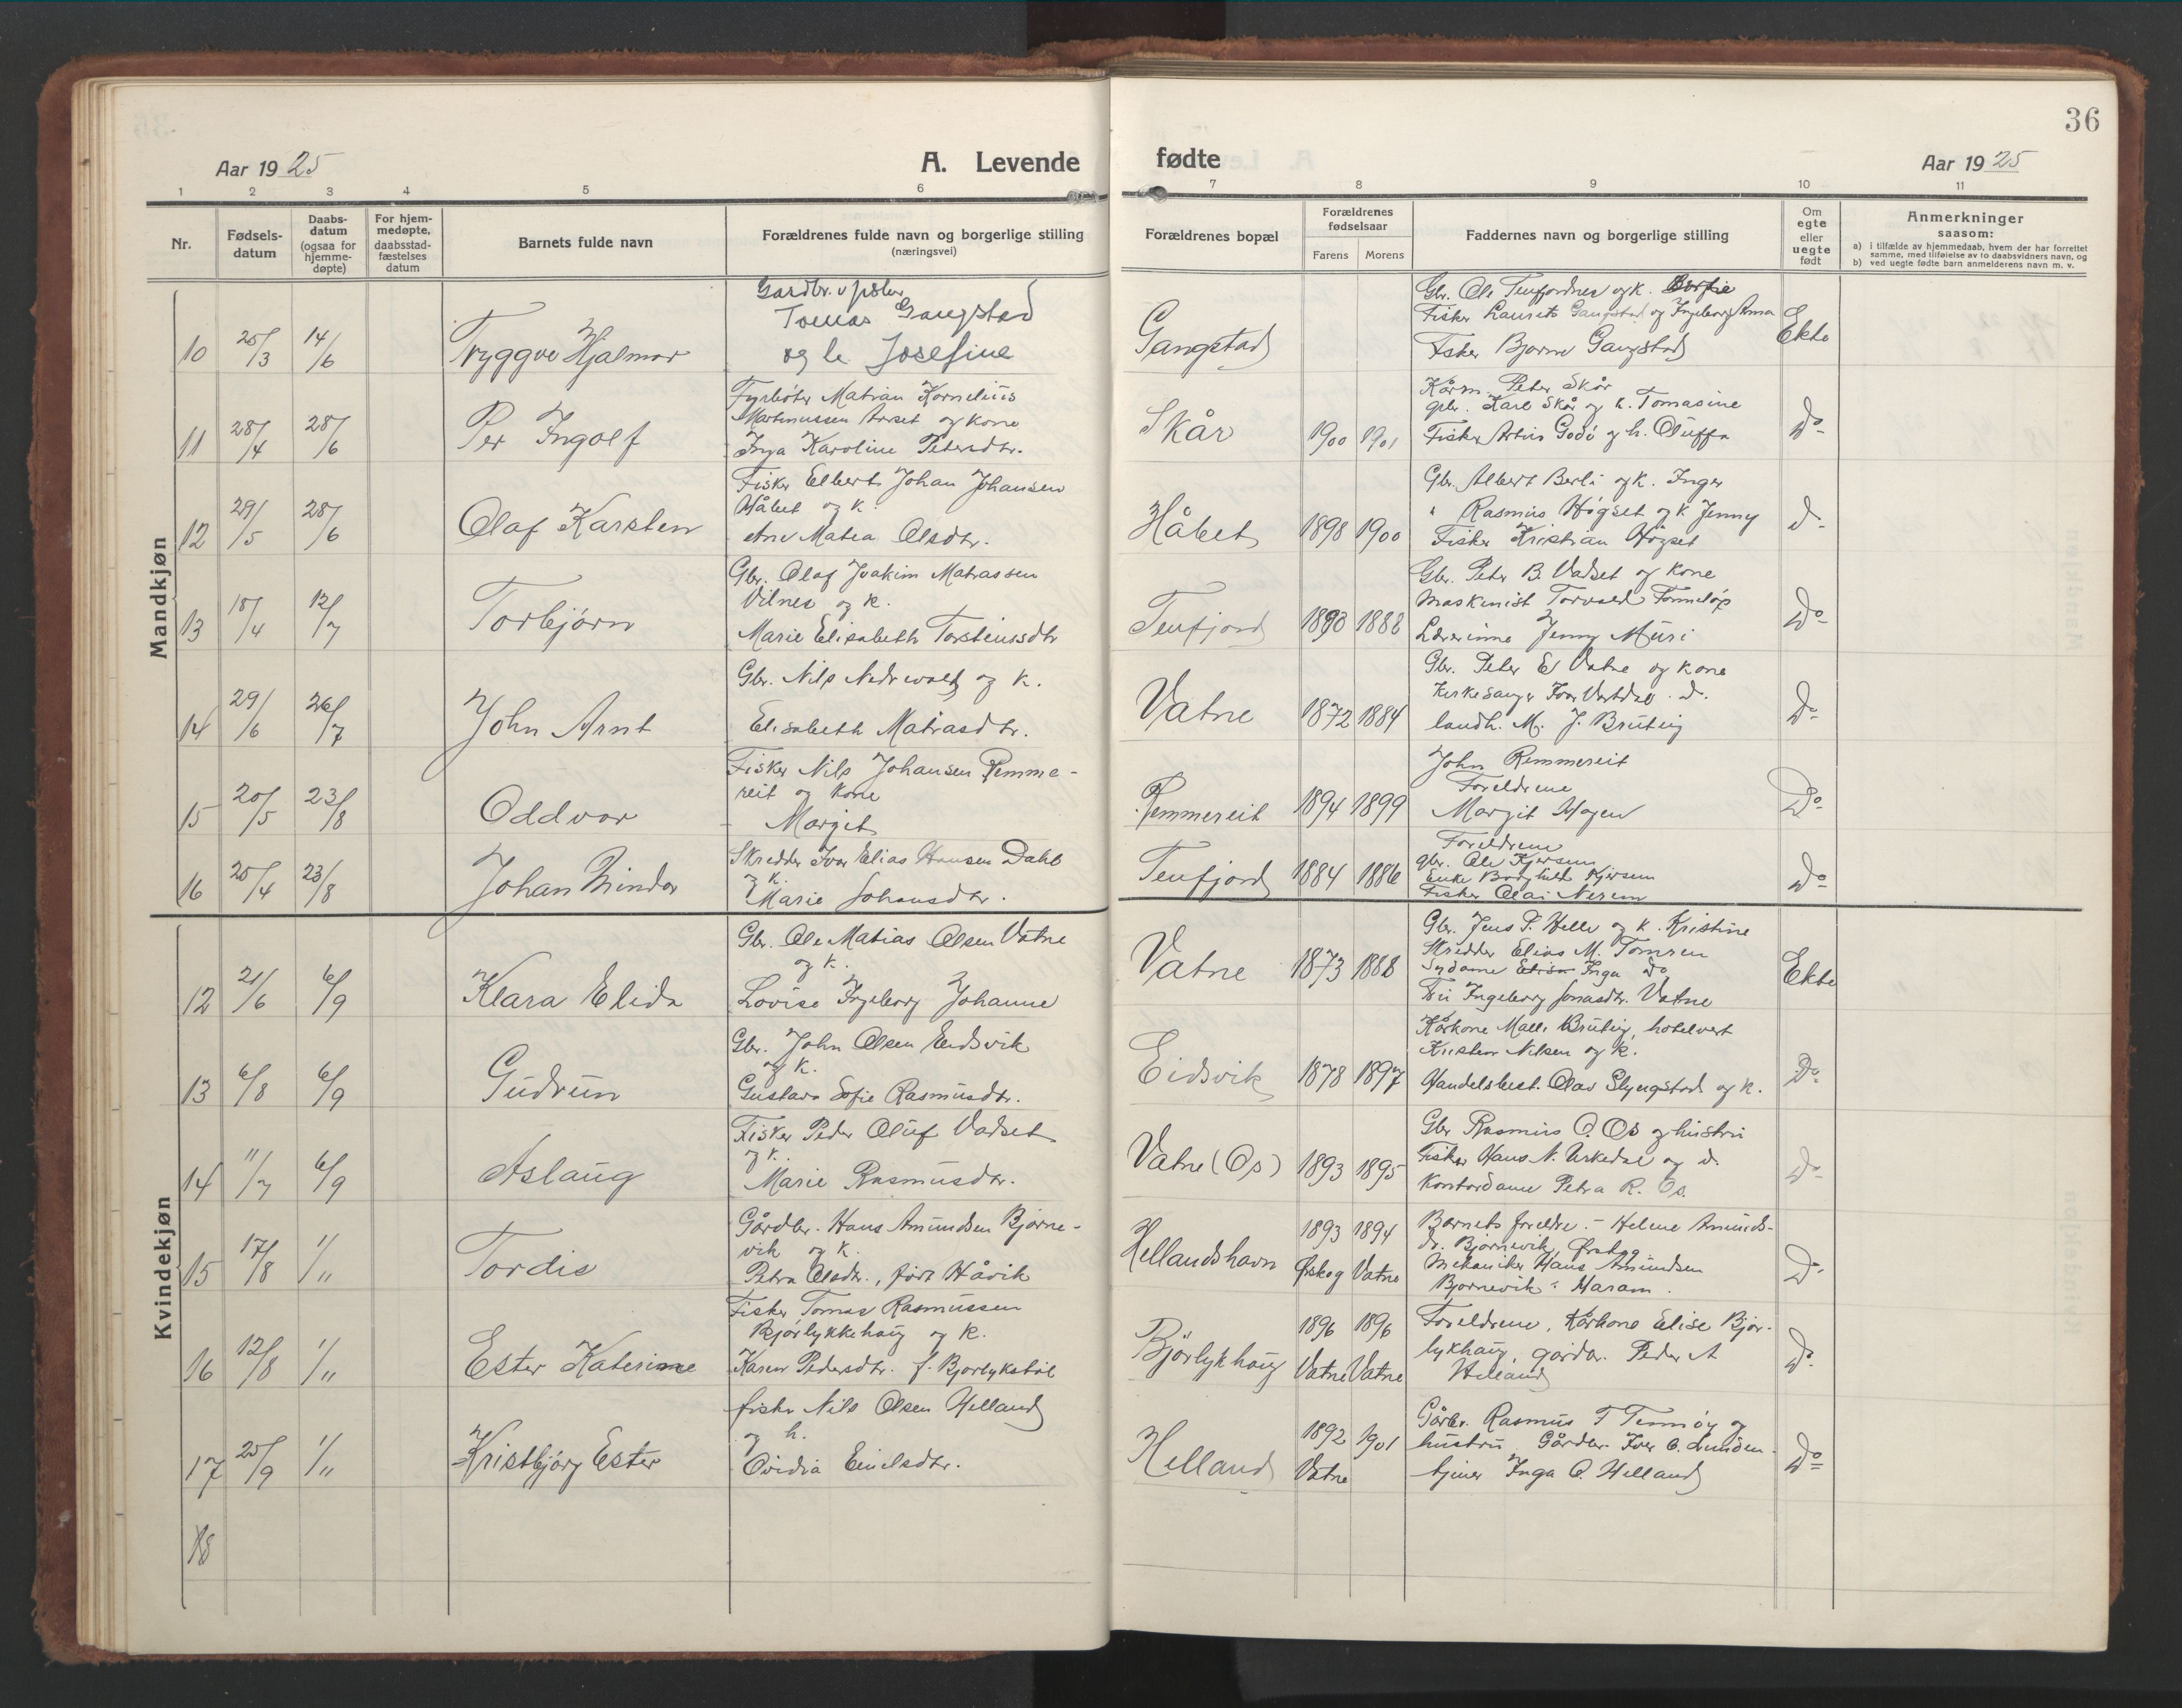 36
Aar 1925
A. Levende fødte
Aar 1925
1 2 3 4 5 6 7 8 9 10 11
Nr.
Fødsels-
datum
Daabs-
datum
(ogsaa for
hjemme-
døpte)
For hjem-
medøpte,
daabsstad-
fæstelses
datum
Barnets fulde navn
Forældrenes fulde navn og borgerlige stilling
(næringsvei)
Forældrenes bopæl
Forældrenes
fødselsaar
Farens Morens
Faddernes navn og borgerlige stilling
Om
egte
eller
uegte
født
Anmerkninger
saasom:
a) i tilfælde av hjemmedaab, hvem der har forrettet
samme, med tilføielse av to daabsvidners navn, og
b) ved uegte fødte barn anmelderens navn m. v.
Mandkjøn
10 25/3 14/6 Tryggve Hjalmar
Tomas Gangstad
og k Josefine
Gangstad
Gbr. Ole Tenfjordnes og k.
Fisker Laurits Gangstad og Ingeborg Anna
Fisker Bjarne Gangstad
Ekte
11 28/4 28/6 Per Ingolf
Fyrbøter Matian Kornelius
Martinussen Årset og kone
Inga Karoline Petersdtr.
Skår 1900 1901
Kårm. Peter Skår
gbr. Karl Skår og k. Tomasine
Fisker Artur Godø og h. Oluffa
Do
12 29/5 28/6 Olaf Karsten
Fisker Elbert Johan Johansen
Håbet og k.
Ane Matea Olsdtr.
Håbet 1898 1900
Gbr. Albert Berli og k. Inger
" Rasmus Høgset og k Jenny
Fisker Kristian Høgset
Do
13 18/4 12/7 Torbjørn
Gbr. Olaf Joakim Matiassen
Vilnes og k.
Marie Elisabeth Torsteinsdtr
Tenfjord 1890 1888
Gbr. Peter B. Vadset og kone
Maskinist Torvald
Lærerinne Jenny Muri
Do
14 29/6 26/7 John Arnt
Gbr. Nils Nedrevold og k.
Elisabeth Matiasdtr.
Vatne 1872 1884
Gbr. Peter E Vatne og kone
Kirkesanger Ivar Vartdal. d.
landh. M. J. Brüteig
Do
15 20/5 23/8 Oddvar
Fisker Nils Johansen Remme-
reit og kone
Margit
Remmereit 1894 1899
John Remmereit
Foreldrene
Margit Hagen
Do
16 25/4 23/8 Johan Mindor
Skredder Ivar Elias Hansen Dahl
og k.
Marie Johansdtr.
Tenfjord 1884 1886
Foreldrene
gbr. Ole Kjersem
Enke Borghild Kjersem
Fisker Olai Nerem
Do
Kvindekjøn
12 21/6 6/9 Klara Elida
Gbr. Ole Matias Olsen Vatne
og k.
Lovise Ingeborg Johanne
Vatne 1873 1888
Gbr. Jens P. Helle og k. Kristine
Skredder Elias M. Tomren
Sydame Inga Do
Fru Ingeborg Jonasdtr. Vatne
Ekte
13 6/8 6/9 Gudrun
Gbr. John Olsen Eidsvik
og k.
Gustava Sofie Rasmusdtr.
Eidsvik 1878 1897
Kårkone Malli Brüteig, hotelvert
Kristen Nilsen og k.
Handelsbest. Olav Slyngstad og k.
Do
14 11/7 6/9 Aslaug
Fisker Peder Oluf Vadset
og k.
Marie Rasmusdtr.
Vatne (Os) 1893 1895
Gbr Rasmus O. Os og hustru
Fisker Hans N. Urkedal og d.
Kontordame Petra R. Os.
Do
15 17/8 1/11 Tordis
Gårdbr. Hans Amundsen Bjørne-
vik og k.
Petra Olsdtr., født Håvik
Hellandshavn 1893 1894
Ørskog Vatne
Barnets foreldre. - Helene Amunds-
dr. Bjørnevik, Ørskog
Mekaniker Hans Amundsen
Bjørnevik - Haram.
Do
16 12/8 1/11 Ester Katerine
Fisker Tomas Rasmussen
Bjørlykkehaug og k.
Karen Pedersdtr. f. Bjørlykstøl
Bjørlykhaug 1896 1896
Vatne Vatne
Foreldrene, Kårkone Elise Bjør-
lykhaug, gårdbr. Peder A
Helland
Do
17 25/9 1/11 Kristbjørg Ester
fisker Nils Olsen Helland
og h.
Ovidia
Helland 1892 1901
Vatne
Gårbr. Rasmus T Tennøy og
hustru. Gårdbr. Iver
Inga O. Helland
Do
18